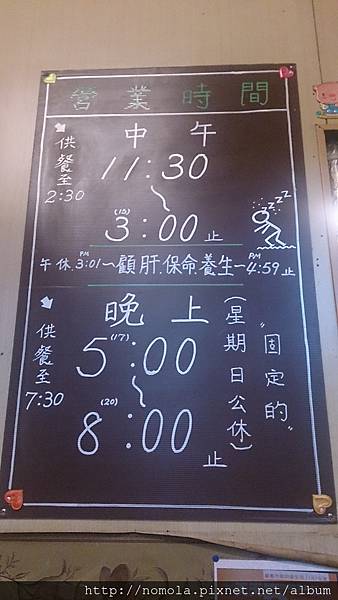 營業時間
中午
供餐至
2:30
11:30
~
(15)
3:00止
zzzz
午休 PM 3:01~顧肝.保命養生~PM 4:59止
晚上
供餐至
7:30
5:00
(17)
~
(20)
8:00
止
(星期日公休)
"固定的"
http://nomola.pixnet.net/album